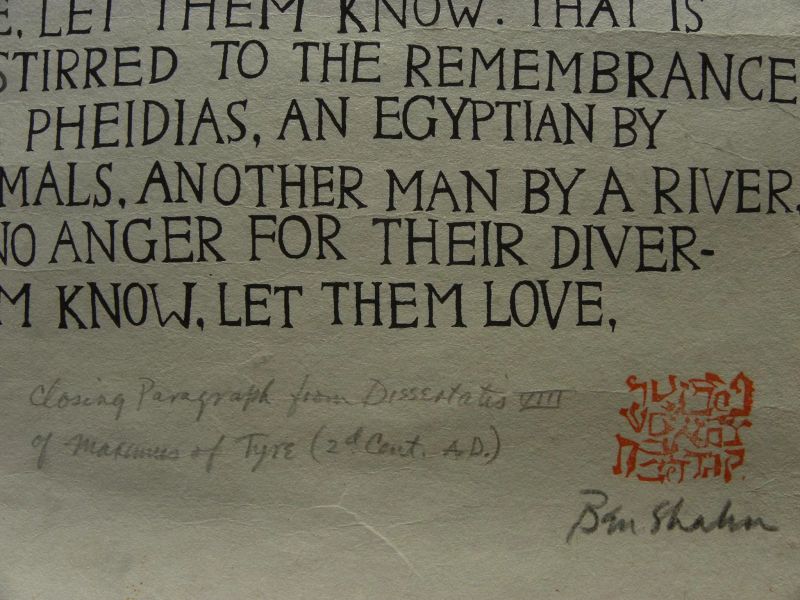 E, LET THEM KNOW. THAT IS
STIRRED TO THE REMEMBRANCE
PHEIDIAS, AN EGYPTIAN BY
MALS, ANOTHER MAN BY A RIVER,
NO ANGER FOR THEIR DIVER-
M KNOW, LET THEM LOVE,
Closing Paragraph from Dissertatis VIII
of Maximus of Tyre (2d Cent. A.D.)
Ben Shahn